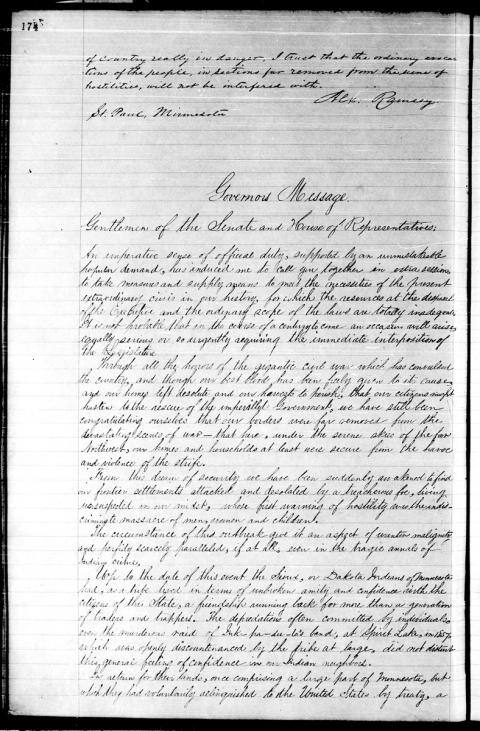 174
of country really in danger, I trust that the ordinary avoca-
tions of the people, in sections far removed from the scene of
hostilities, will not be interfered with.
Alex. Ramsey
St. Paul, Minnesota
Governors Message.
Gentlemen of the Senate and House of Representatives;
An imperative sense of official duty, supported by an unmistakable
popular demand, has induced me to call you together in extra session,
to take measures and supply means to meet the necessities of the present
extraordinary crisis in our history, for which the resources at the disposal
of the Executive and the ordinary scope of the laws are totally inadequate.
It is not probable that in the course of a century to come an occasion will arise,
equally serious or so urgently requiring the immediate interposition of
the Legislature.
Through all the horrors of the gigantic civil war which has convulsed
the country, and though our best blood has been freely given to its cause,
and our homes left desolate and our harvests to perish, that our citizens might
hasten to the rescue of the imperiled Government, we have still been
congratulating ourselves that our borders were far removed from the
devastating scenes of war — that here, under the serene skies of the far
Northwest, our homes and households at least were secure from the havoc
and violence of the strife.
From this dream of security we have been suddenly awakened to find
our frontier settlements attacked and desolated by a treacherous foe, living
unsuspected in our midst, whose first warning of hostility was the indis-
criminate massacre of men, women and children.
The circumstances of this outbreak give it an aspect of wanton malignity
and perfidy scarcely paralleled, if at all, even in the tragic annals of
Indian crime.
Up to the date of this event the Sioux, or Dakota Indians of Minnesota
had, as a tribe lived in terms of unbroken amity and confidence with the
citizens of this State, a friendship running back for more than a generation
of traders and trappers. The depredations often committed by individuals,
even the murderous raid of Ink-pa-du-ta's band, at Spirit Lake, in 1857,
which was openly discountenanced by the tribe at large, did not disturb
this general feeling of confidence in our Indian neighbors.
In return for their lands, once comprising a large part of Minnesota, but
which they had voluntarily relinquished to the United States by treaty, a